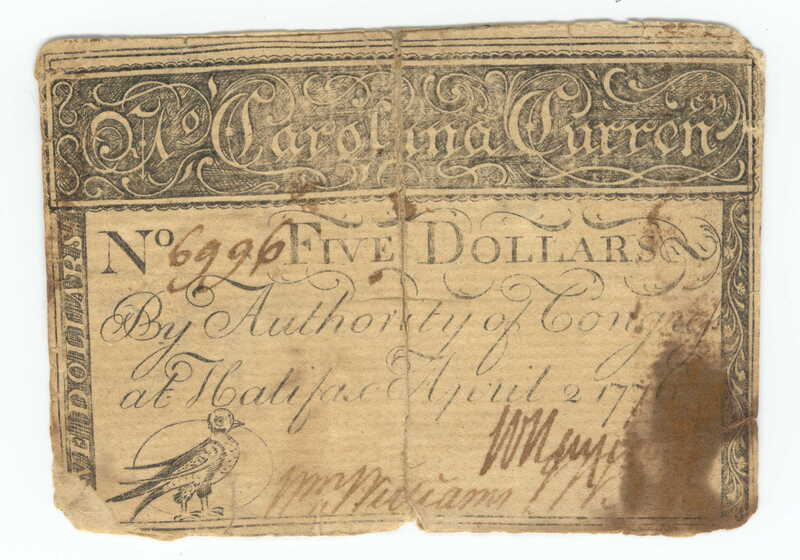 No Carolina Currency
No 6996 FIVE DOLLARS
By Authority of Congress
at Halifax April 2 1776
Wm Williams